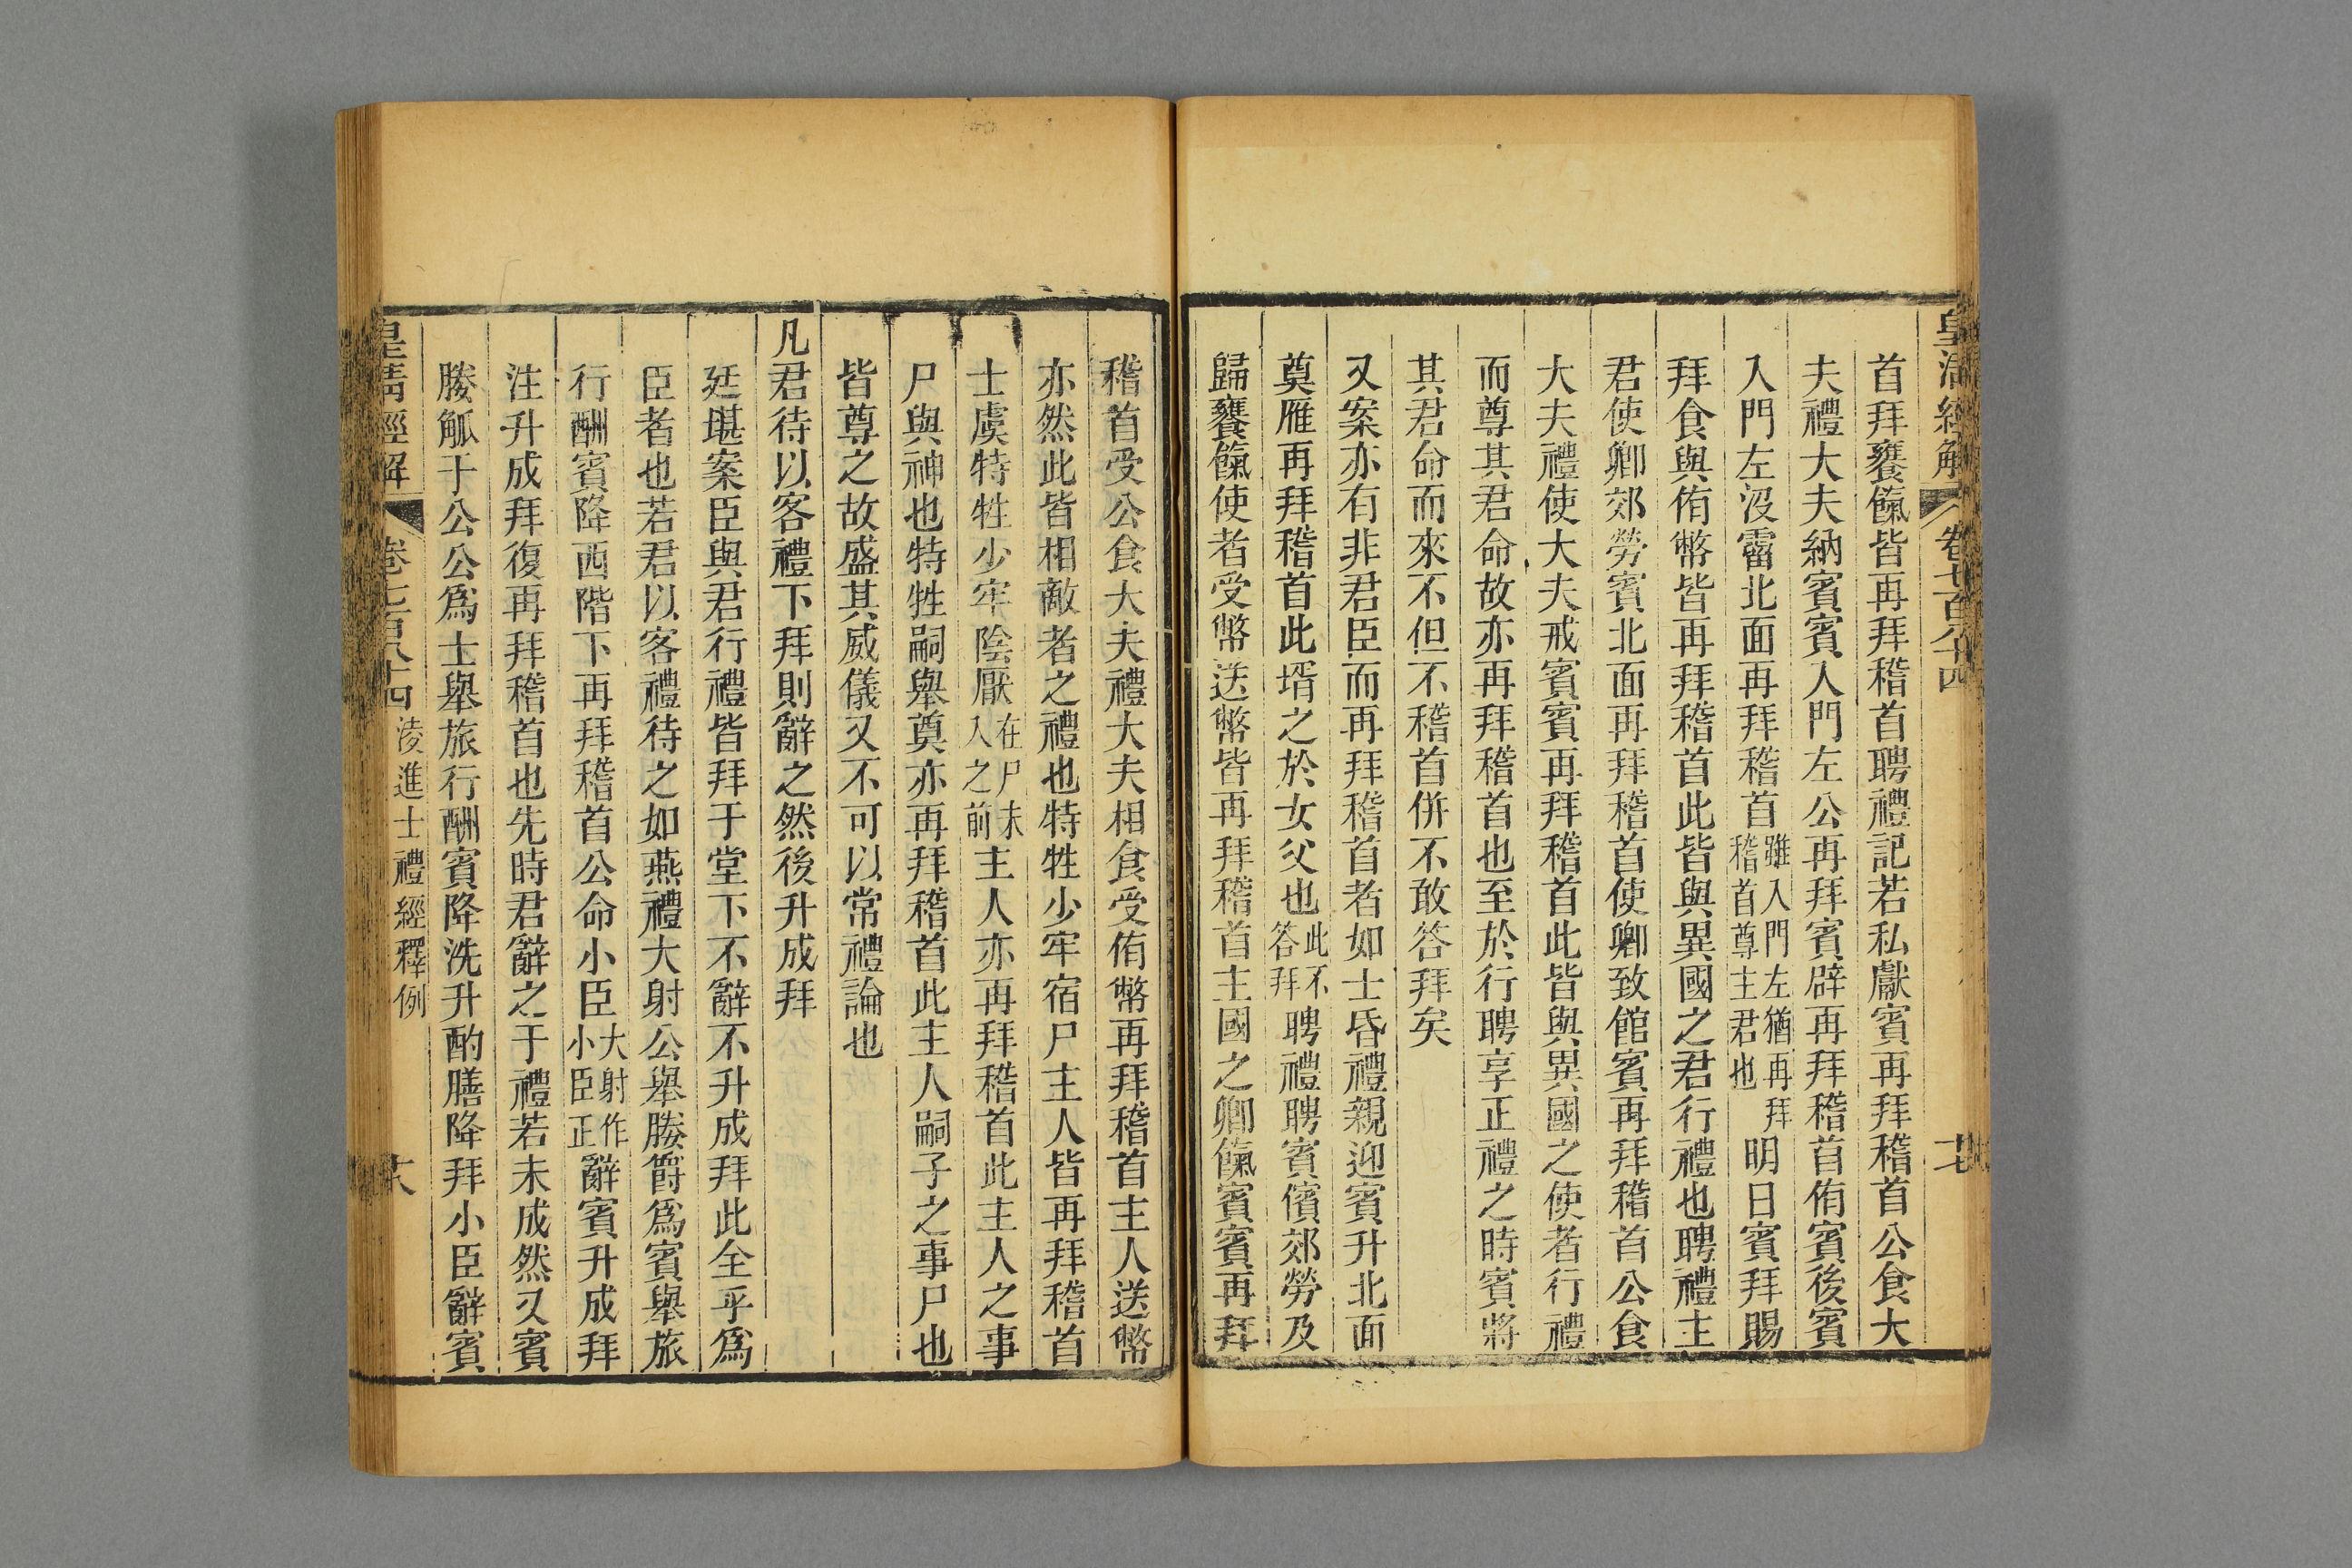 皇清經解 卷七百八十四 十七
首拜饔餼皆再拜稽首聘禮記若私獻賓再拜稽首公食大
夫禮大夫納賓賓入門左公再拜賓辟再拜稽首侑賓後賓
入門左沒霤北面再拜稽首雖入門左猶再拜稽首尊主君也明日賓拜賜
拜食與侑幣皆再拜稽首此皆與異國之君行禮也聘禮主
君使卿郊勞賓北面再拜稽首使卿致館賓再拜稽首公食
大夫禮使大夫戒賓賓再拜稽首此皆與異國之使者行禮
而尊其君命故亦再拜稽首也至於行聘享正禮之時賓將
其君命而來不但不稽首併不敢答拜矣
又案亦有非君臣而再拜稽首者如士昏禮親迎賓升北面
奠雁再拜稽首此壻之於女父也此不答拜聘禮聘賓儐郊勞及
歸饔餼使者受幣送幣皆再拜稽首主國之卿餼賓賓再拜
稽首受公食大夫禮大夫相食受侑幣再拜稽首主人送幣
亦然此皆相敵者之禮也特牲少牢宿尸主人皆再拜稽首
士虞特牲少牢陰厭在尸未入之前主人亦再拜稽首此主人之事
尸與神也特牲嗣舉奠亦再拜稽首此主人嗣子之事尸也
皆尊之故盛其威儀又不可以常禮論也
凡君待以客禮下拜則辭之然後升成拜
廷堪案臣與君行禮皆拜于堂下不辭不升成拜此全乎爲
臣者也若君以客禮待之如燕禮大射公舉媵爵爲賓舉旅
行酬賓降西階下再拜稽首公命小臣大射作小臣正辭賓升成拜
注升成拜復再拜稽首也先時君辭之于禮若未成然又賓
媵觚于公公爲士舉旅行酬賓降洗升酌膳降拜小臣辭賓
皇清經解 卷七百八十四 淩進士禮經釋例 十八